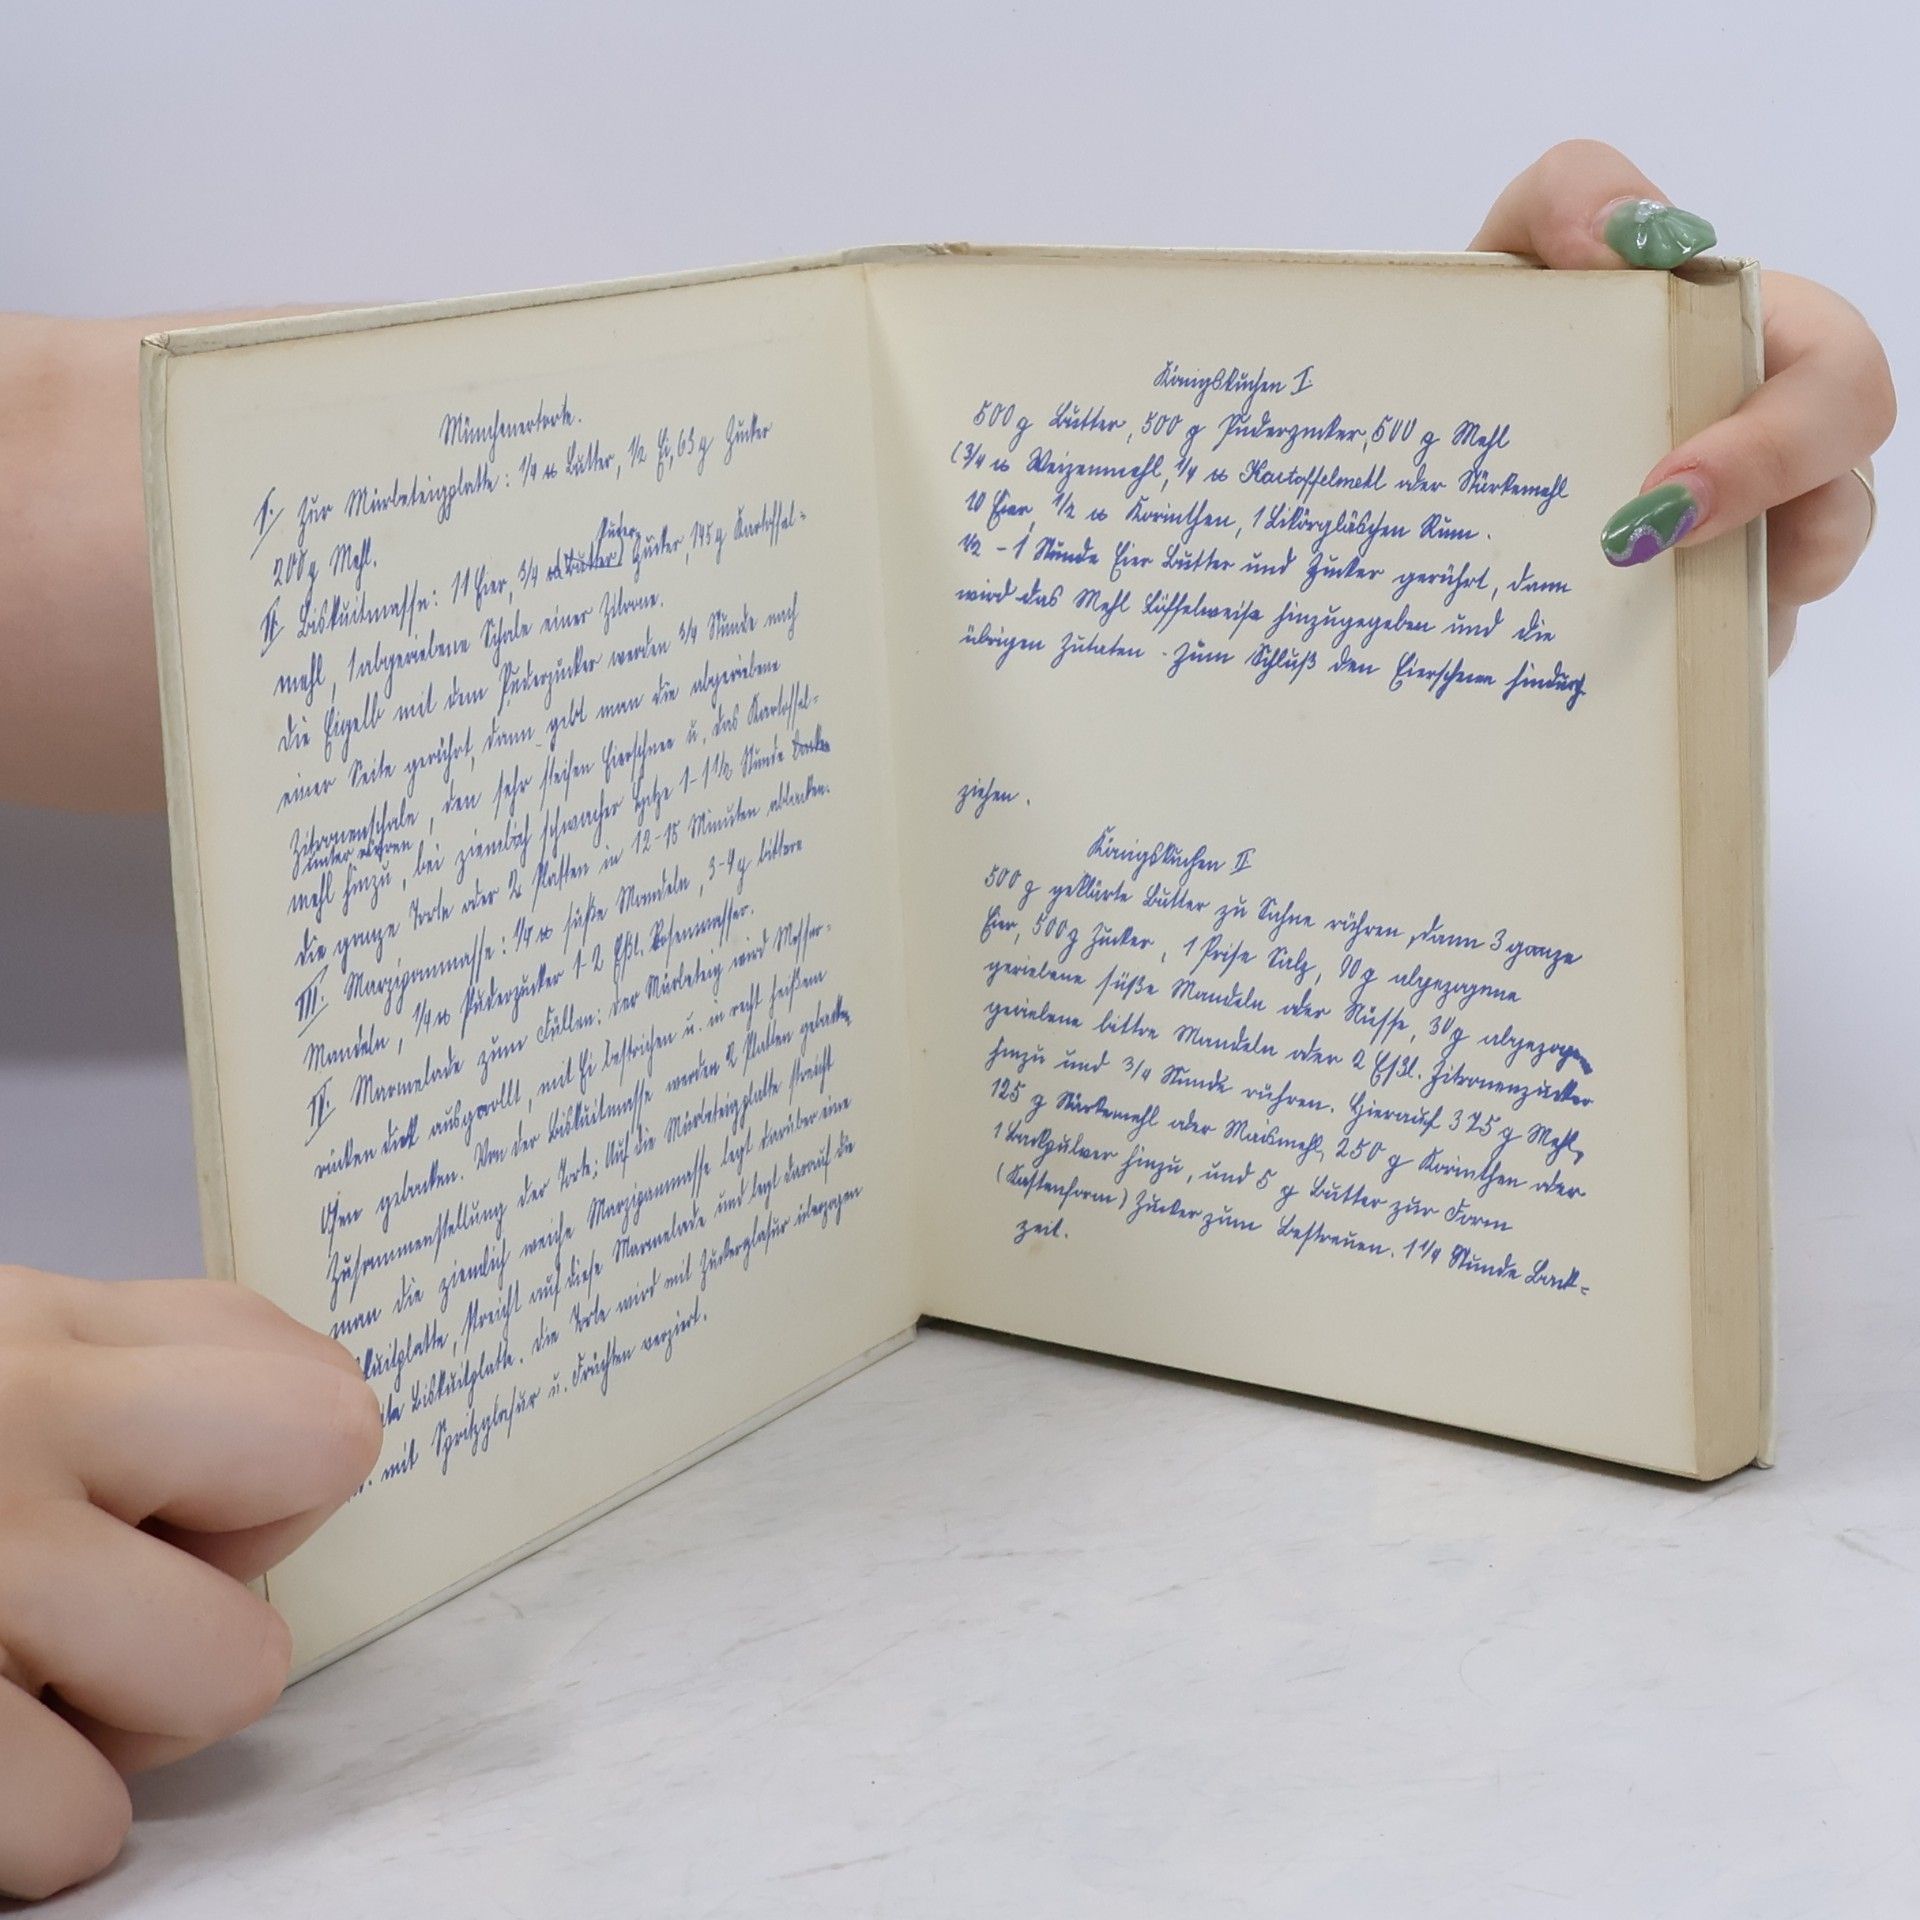 Münchenertorte.
I. Zur Mürbeteigplatte: 1/4 ℔ Butter, 1/2 Ei, 63 g Zucker
200 g Mehl.
Puder
II. Biskuitmasse: 11 Eier, 3/4 ℔ Butter) Zucker, 145 g Kartoffel-
mehl, 1 abgeriebene Schale einer Zitrone.
Die Eigelb mit dem Puderzucker werden 3/4 Stunde nach
einer Seite gerührt, dann gebt man die abgeriebene
Zitronenschale, den sehr steifen Eierschnee u. das Kartoffel-
unter rühren
mehl hinzu, bei ziemlich schwacher Hitze 1-1 1/2 Stunde backen
die ganze Torte oder 2 Platten in 12-15 Minuten abbacken.
III. Marzipanmasse: 1/4 ℔ süße Mandeln, 3-4 g bittere
Mandeln, 1/4 ℔ Puderzucker 1-2 Eßl. Rosenwasser.
IV. Marmelade zum Füllen: Der Mürbeteig wird Messer-
rücken dick ausgerollt, mit Ei bestrichen u. in recht heißem
Ofen gebacken. Von der Biskuitmasse werden 2 Platten gebacken
Zusammenstellung der Torte: Auf die Mürbeteigplatte streicht
man die ziemlich weiche Marzipanmasse legt darüber eine
kuitplatte, streicht auf diese Marmelade und legt darauf die
te Biskuitplatte. Die Torte wird mit Zuckerglasur überzogen
mit Spritzglasur u. Früchten verziert.
Königskuchen I.
500 g Butter, 500 g Puderzucker, 500 g Mehl
(3/4 ℔ Weizenmehl, 1/4 ℔ Kartoffelmehl oder Stärkemehl
10 Eier, 1/2 ℔ Korinthen, 1 Likörgläschen Rum.
1/2 - 1 Stunde Eier Butter und Zucker gerührt, dann
wird das Mehl Löffelweise hinzugegeben und die
übrigen Zutaten. Zum Schluß den Eierschnee hindurch
ziehen.
Königskuchen II
500 g geklärte Butter zu Sahne rühren, dann 3 ganze
Eier, 500 g Zucker, 1 Prise Salz, 90 g abgezogene
geriebene süße Mandeln oder Nüsse, 30 g abgezogene
geriebene bittre Mandeln oder 2 Eßl. Zitronenzucker
hinzu und 3/4 Stunde rühren. Hierauf 375 g Mehl,
125 g Stärkemehl oder Maismehl, 250 g Korinthen oder
1 Backpulver hinzu, und 5 g Butter zur Form
(Kastenform) Zucker zum Bestreuen. 1 1/4 Stunde Back-
zeit.